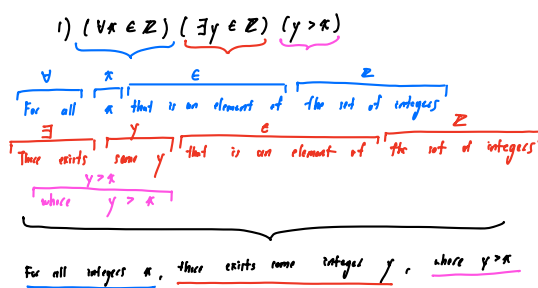 1) (∀x ∈ ℤ) (∃y ∈ ℤ) (y > x)
∀ x ∈ ℤ
For all x that is an element of the set of integers
∃ y ∈ ℤ
There exists some y that is an element of the set of integers
y > x
where y > x
For all integers x, there exists some integer y, where y > x